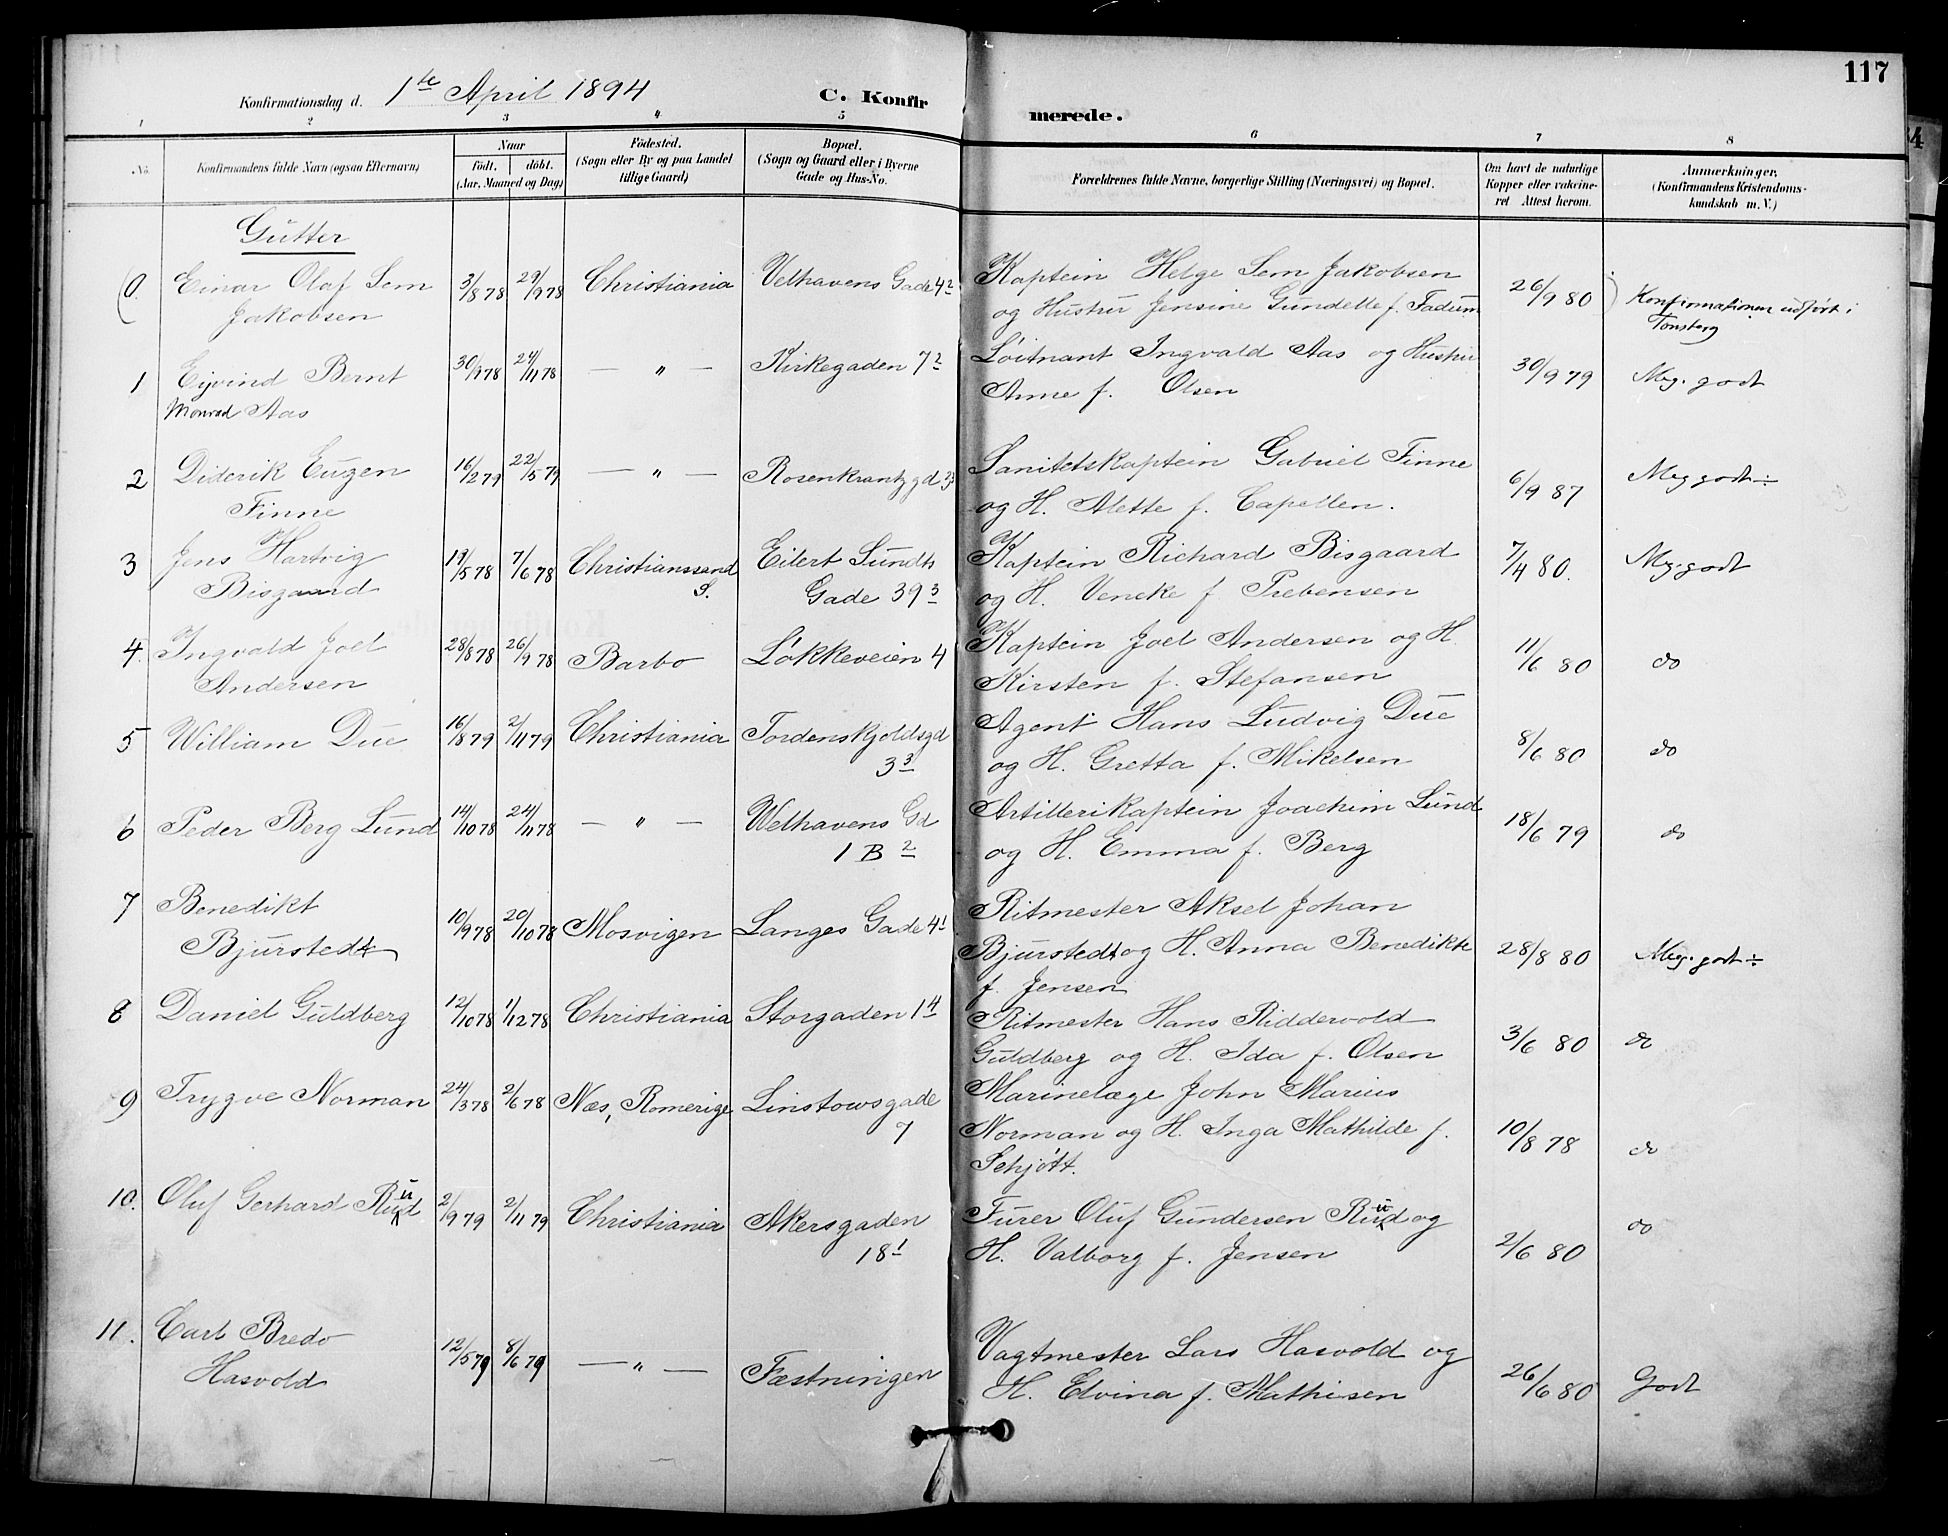 117
Konfirmationsdag d. 1te April 1894
C. Konfirmerede.
1 2 3 4 5 6 7 8
No.
Konfirmandens fulde Navn (ogsaa Efternavn)
Naar
født. døbt.
(Aar, Maaned og Dag)
Fødested.
(Sogn eller By og paa Landet
tillige Gaard)
Bopæl.
(Sogn og Gaard eller i Byerne
Gade og Hus-No.
Forældrenes fulde Navne, borgerlige Stilling (Næringsvei) og Bopæl.
Om havt de naturlige
Kopper eller vakcine-
ret Attest herom.
Anmærkninger,
(Konfirmandens Kristendoms-
kundskab m. V.)
Gutter
(0. Einar Olaf Sem 3/8 78 29/9 78 Christiania Velhavens Gade 4 2 Kaptein Helge Sem Jakobsen 26/9 80 ) Konfirmationen udført i
Jakobsen og Hustru Jensine Gundelle f. Fadum Tønsberg
1 Ejvind Bernt 30/9 78 24/11 78 — " — Kirkegaden 7 2 Løitnant Ingvald Aas og Hustru 30/9 79 Meg. godt
Monrad Aas Anne f. Olsen
2 Diderik Eugen 16/2 79 22/5 79 — " — Rosenkrantz gd 33 Sanitetskaptein Gabriel Finne 6/9 87 Meg godt ÷
Finne og H. Alette f. Capellen.
3 Jens Hartvig 19/5 78 7/6 78 Christianssand Eilert Sundts Kaptein Richard Bisgaard 7/4 80. Meg. godt
Bisgaard S. Gade 39 3 og H. Veneke f. Prebensen
4. Ingvald Joel 28/8 78 26/9 78 Barbo Løkkeveien 4 Kaptein Joel Andersen og H. 11/6 80 do
Andersen Kirsten f. Stefansen
5 William Due 16/8 79 2/11 79 Christiania Tordenskjoldsgd Agent Hans Ludvig Due 8/6 80 do
3 3 og H. Gretta f. Mikelsen
6 Peder Berg Lund 14/10 78 24/11 78 — " — Welhavens Gd Artillerikaptein Joachim Lund 18/6 79 do
1 B 2 og H. Emma f. Berg
7 Benedikt 10/9 78 20/10 78 Mosvigen Langes Gade 4 1 Ritmester Aksel Johan
Bjurstedt Bjurstedt og H. Anna Benedikte 28/8 80 Meg. godt ÷
f. Jensen
8 Daniel Guldberg 12/10 78 1/12 78 Christiania Storgaden 1 4 Ritmester Hans Riddervold 3/6 80 do
Guldberg og H. Ida f. Olsen
9 Trygve Norman 24/3 78 2/6 78 Næs, Romerige Linstowsgade Marinelæge John Marius
7 Norman og H. Inga Mathilde f. 10/8 78 do
Schjøtt.
10. Oluf Gerhard Ruud 2/9 79 2/11 79 Christiania Akersgaden Furer Oluf Gundersen Ruud og do
18 1 H. Valborg f. Jensen 2/6 80
11. Carl Bredo 12/5 79 8/6 79 — " — Fæstningen Vagtmester Lars Hasvold og 26/6 80 Godt
Hasvold H. Elvina f. Mathisen